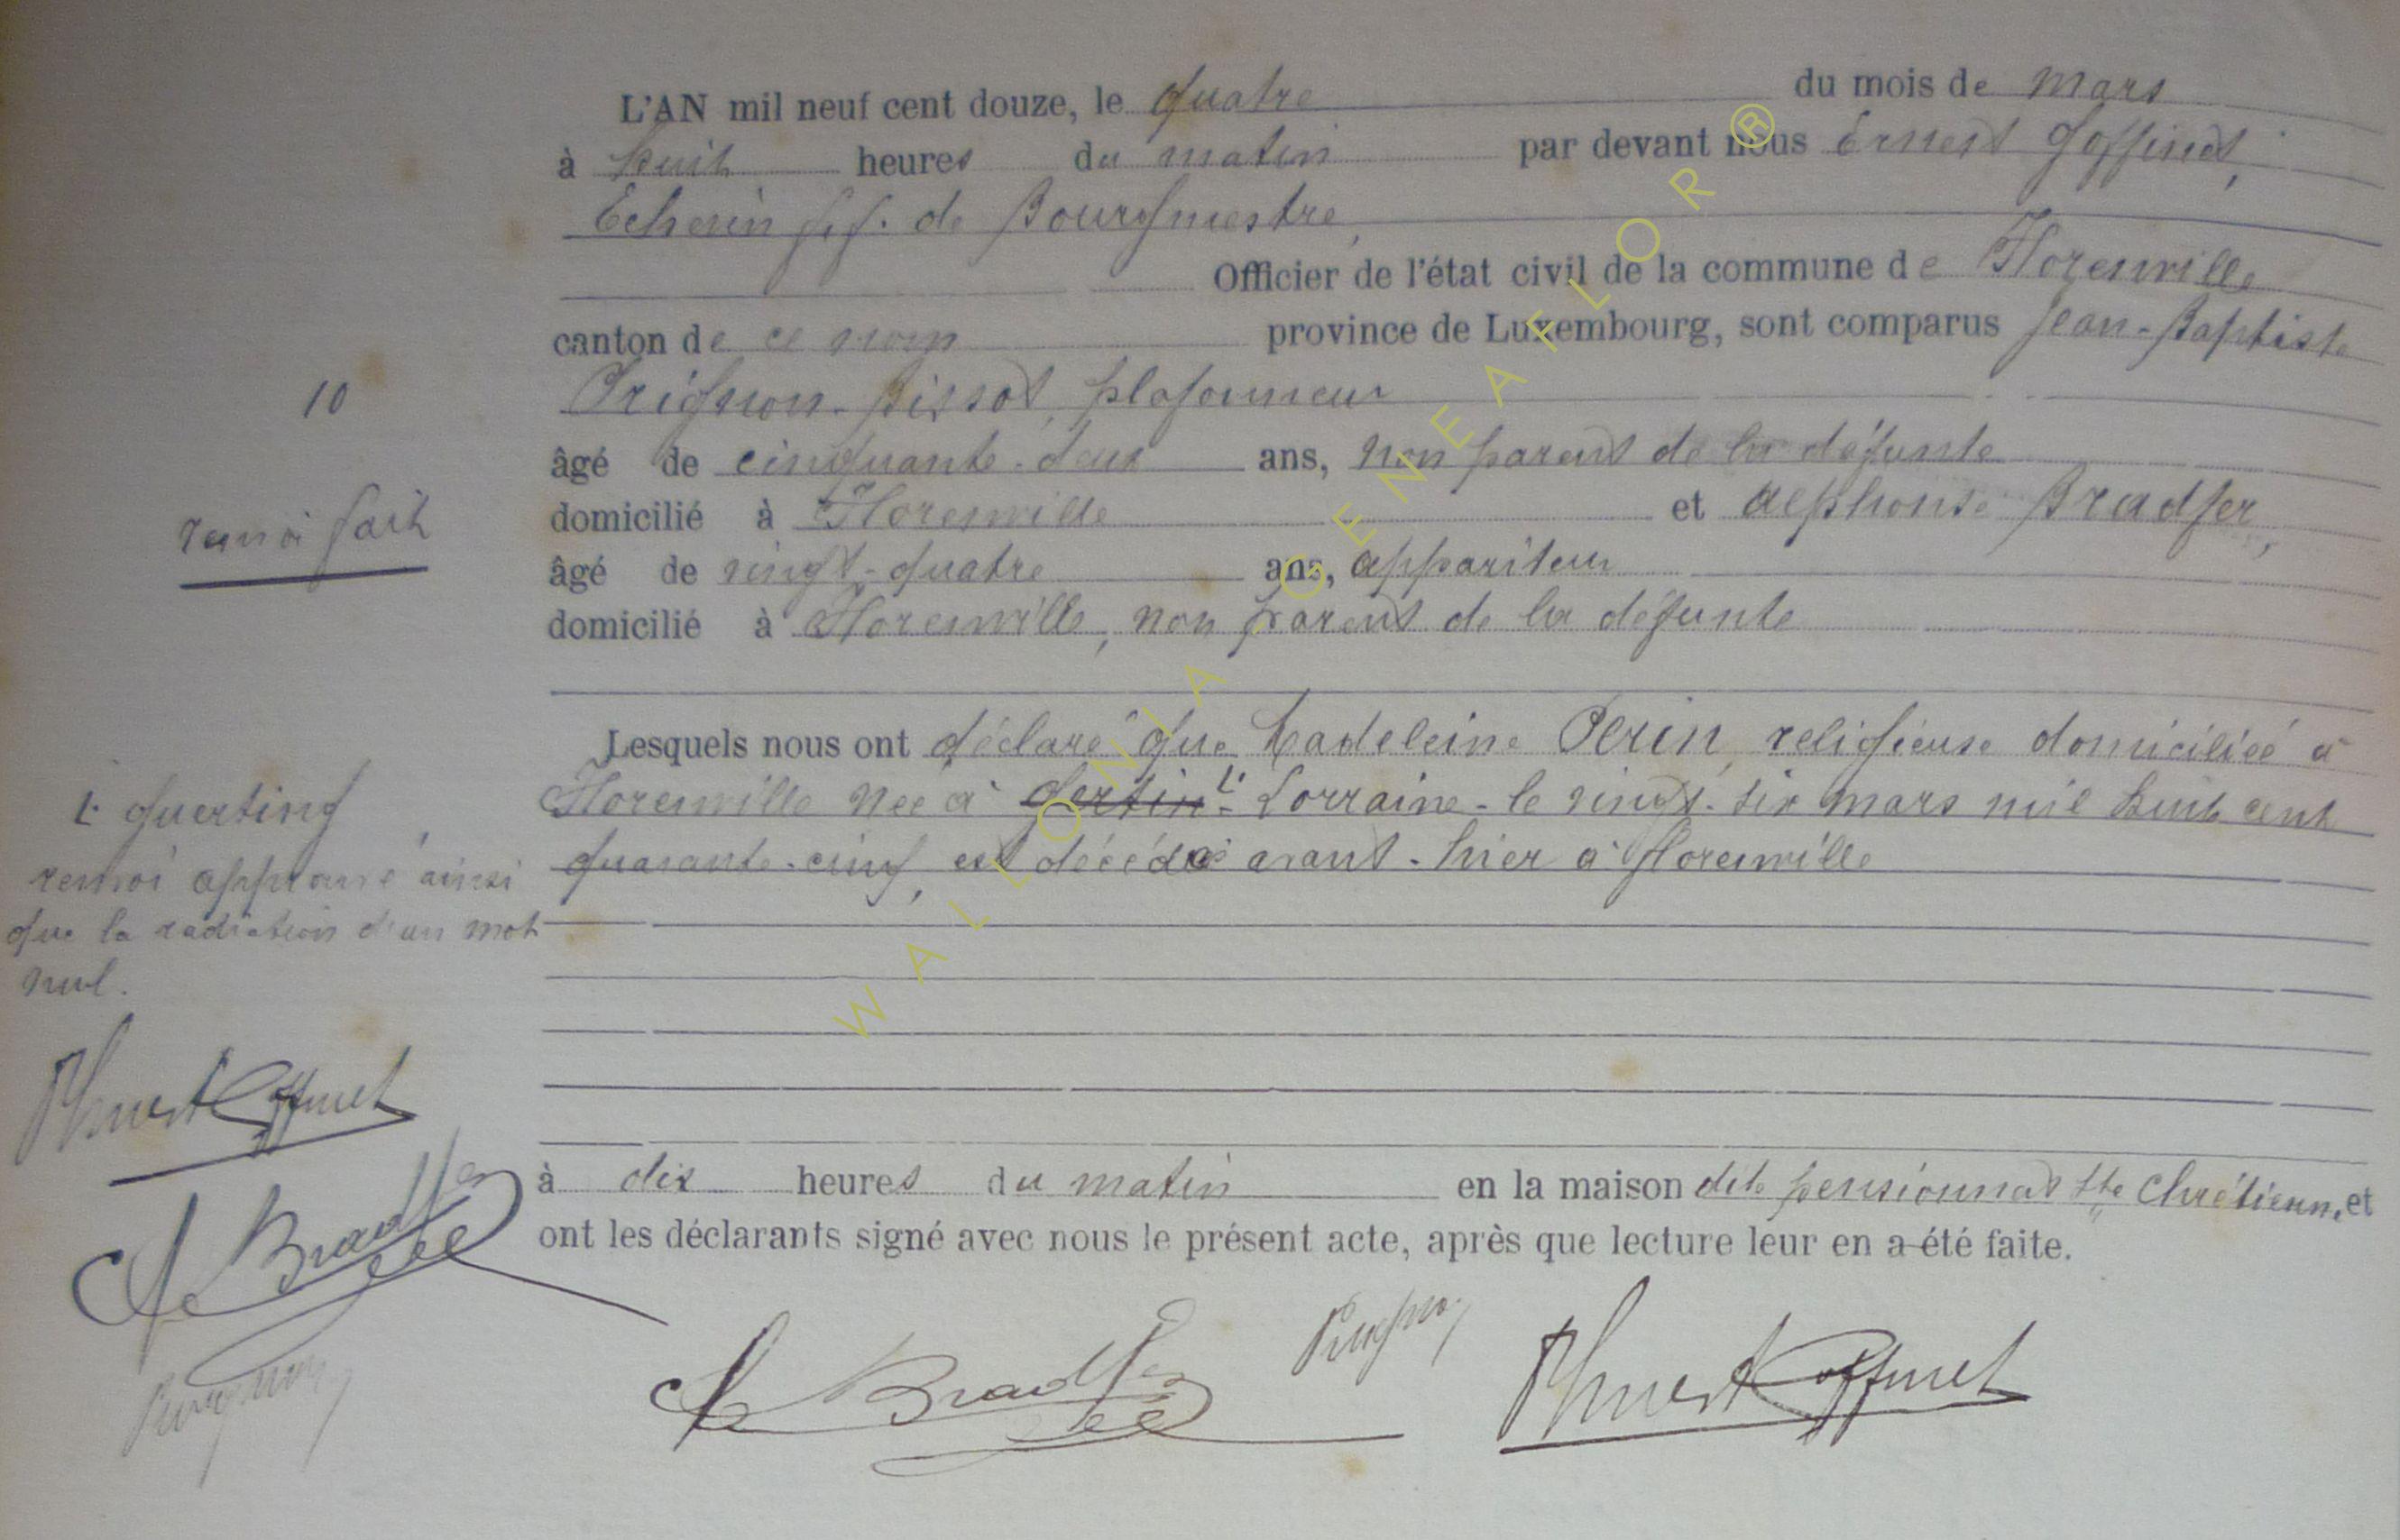 L'AN mil neuf cent douze, le quatre du mois de mars
à huit heures du matin par devant nous Ernest Goffinet,
Echevin ff. de Bourgmestre,
Officier de l'état civil de la commune de Florenville
canton de ce nom province de Luxembourg, sont comparus Jean-Baptiste
Prignon-Pissot, plafonneur
10
âgé de cinquante-deux ans, non parent de la défunte
domicilié à Florenville et Alphonse Bradfer,
renvoi fait
âgé de vingt-quatre ans, appariteur
domicilié à Florenville, non parent de la défunte
Lesquels nous ont déclaré que Madeleine Perin, religieuse domiciliée à
Florenville née à Gertin L. Lorraine - le vingt-six mars mil huit cent
L. Guerting
quarante-cinq, est décédée avant-hier à Florenville
renvoi approuvé ainsi
que la radiation d'un mot
nul.
Ernest Goffinet
A Bradfer
Prignon
à dix heures du matin en la maison dite pensionnat Ste Chrétienne, et
ont les déclarants signé avec nous le présent acte, après que lecture leur en a été faite.
A Bradfer Prignon Ernest Goffinet
WALLONIA GENEAFLOR ®